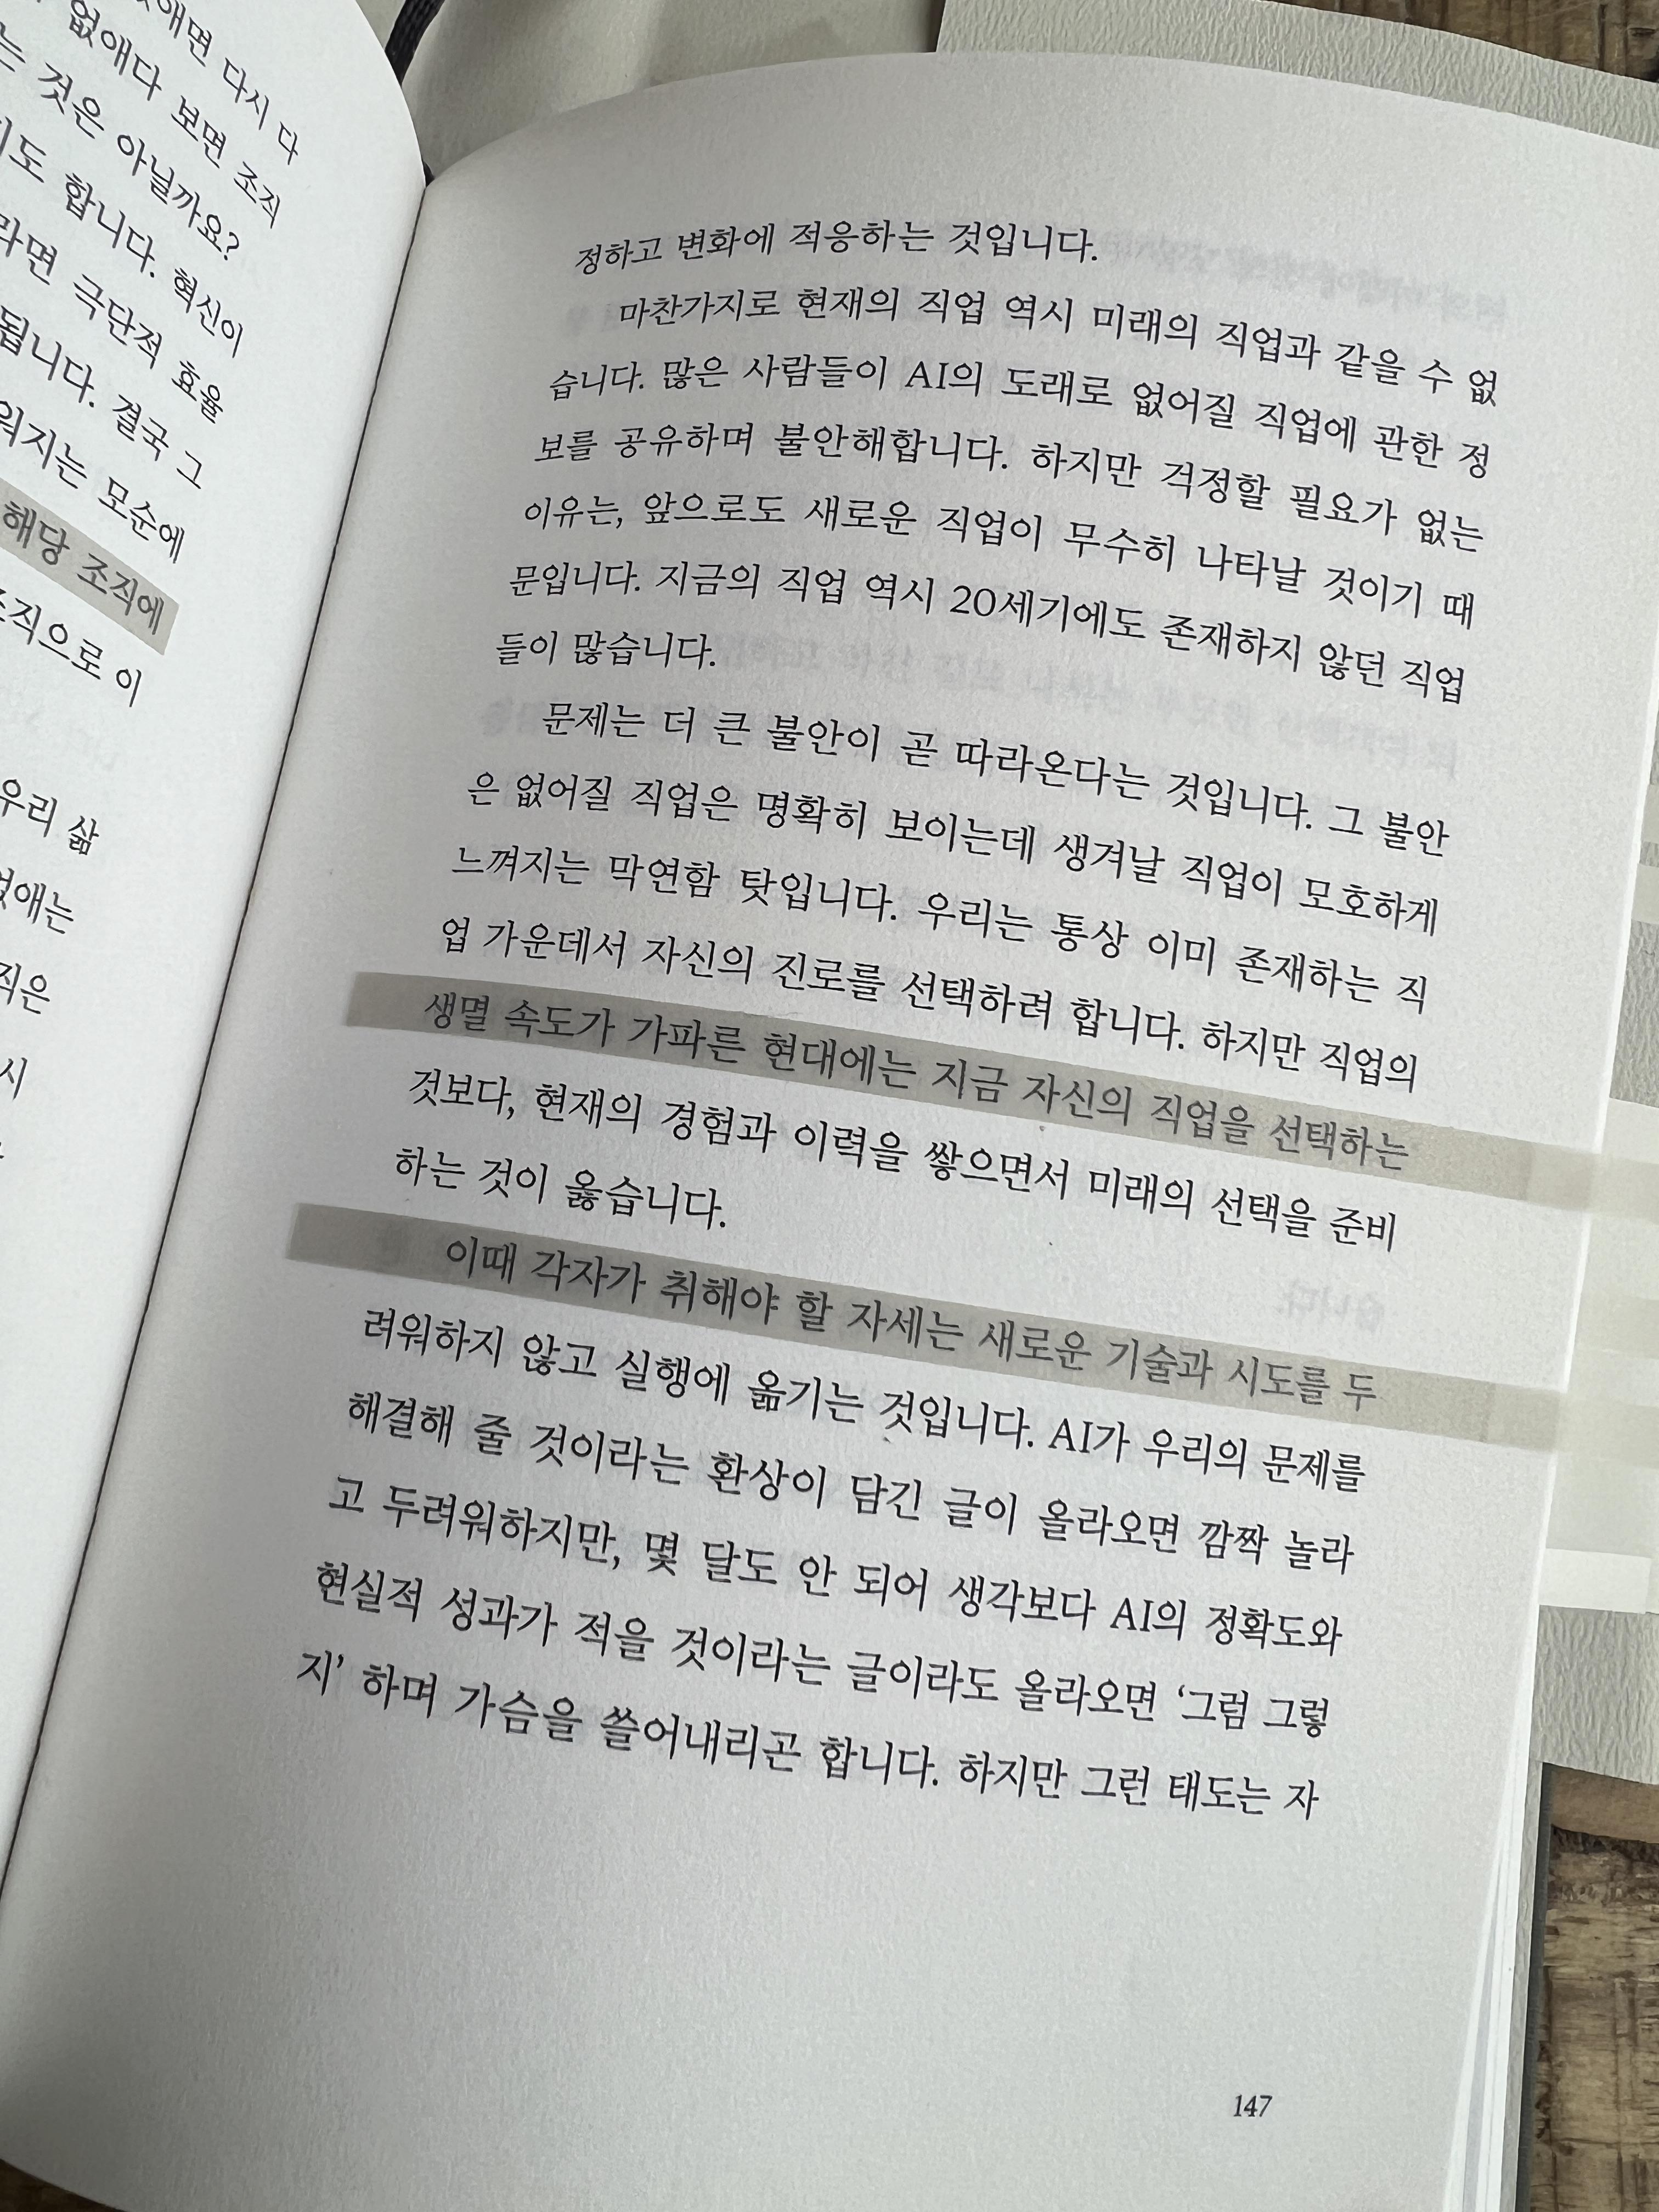 애면 다시 다
없애다 보면 조직
는 것은 아닐까요?
도 합니다. 혁신이
라면 극단적 효율
됩니다. 결국 그
워지는 모순에
해당 조직에
조직으로 이
우리 삶
없애는
직은
시
정하고 변화에 적응하는 것입니다.
마찬가지로 현재의 직업 역시 미래의 직업과 같을 수 없
습니다. 많은 사람들이 AI의 도래로 없어질 직업에 관한 정
보를 공유하며 불안해합니다. 하지만 걱정할 필요가 없는
이유는, 앞으로도 새로운 직업이 무수히 나타날 것이기 때
문입니다. 지금의 직업 역시 20세기에도 존재하지 않던 직업
들이 많습니다.
문제는 더 큰 불안이 곧 따라온다는 것입니다. 그 불안
은 없어질 직업은 명확히 보이는데 생겨날 직업이 모호하게
느껴지는 막연함 탓입니다. 우리는 통상 이미 존재하는 직
업 가운데서 자신의 진로를 선택하려 합니다. 하지만 직업의
생멸 속도가 가파른 현대에는 지금 자신의 직업을 선택하는
것보다, 현재의 경험과 이력을 쌓으면서 미래의 선택을 준비
하는 것이 옳습니다.
이때 각자가 취해야 할 자세는 새로운 기술과 시도를 두
려워하지 않고 실행에 옮기는 것입니다. AI가 우리의 문제를
해결해 줄 것이라는 환상이 담긴 글이 올라오면 깜짝 놀라
고 두려워하지만, 몇 달도 안 되어 생각보다 AI의 정확도와
현실적 성과가 적을 것이라는 글이라도 올라오면 ‘그럼 그렇
지’ 하며 가슴을 쓸어내리곤 합니다. 하지만 그런 태도는 자
147